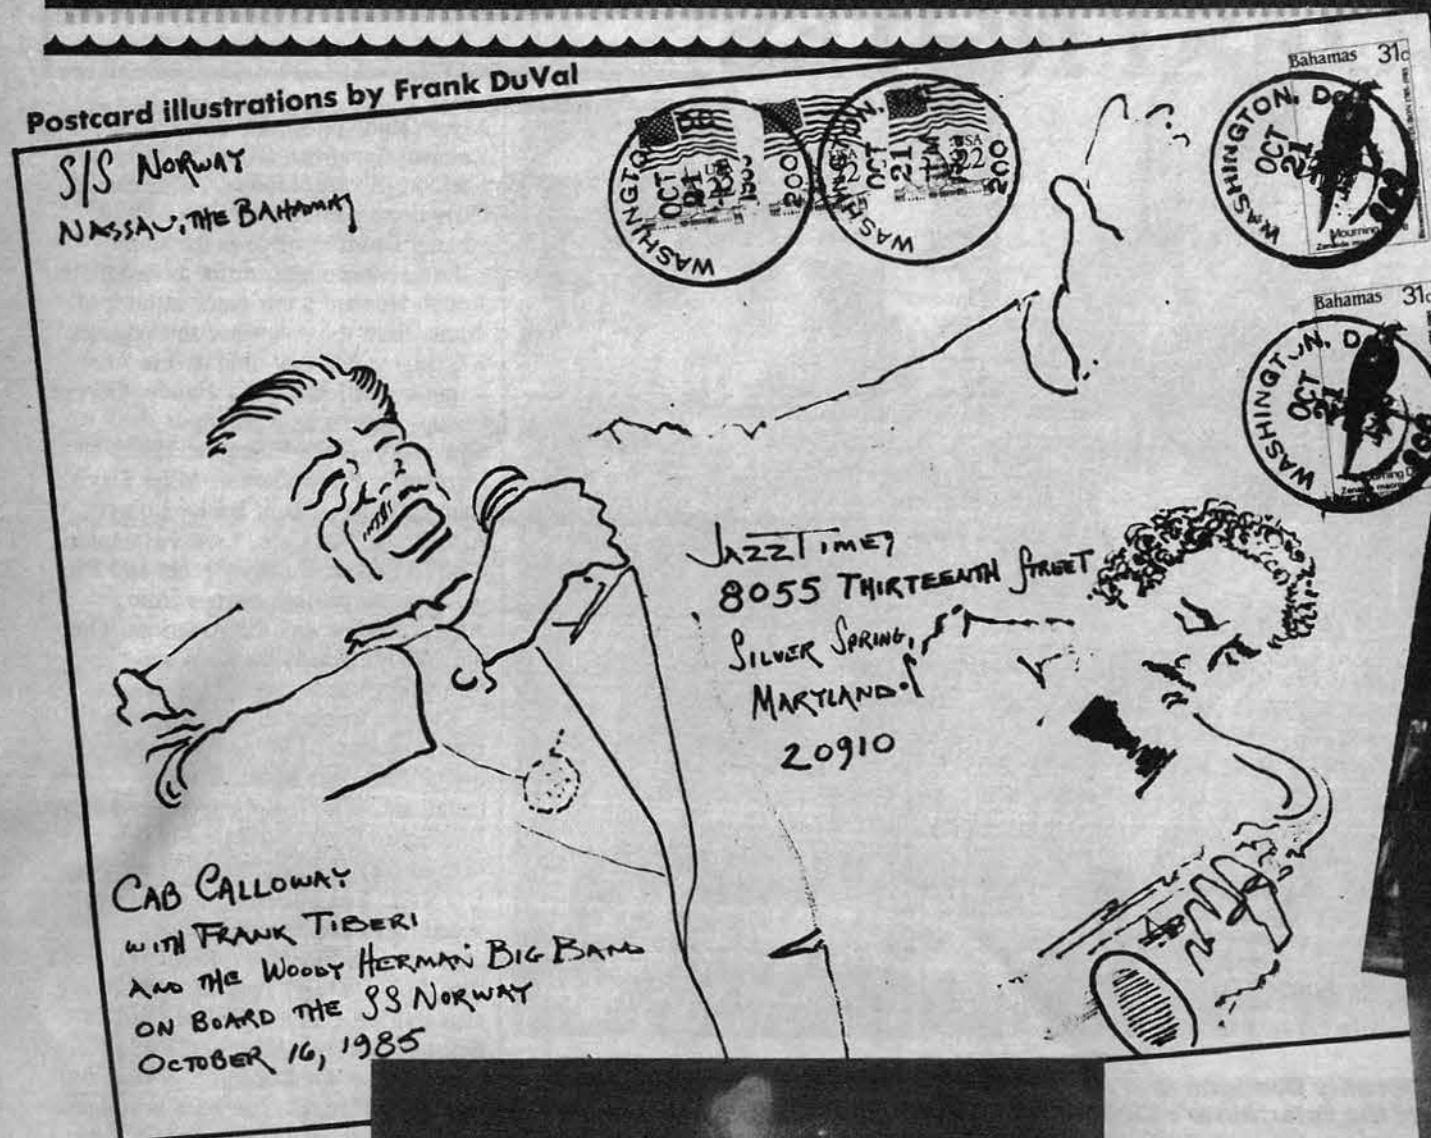 Postcard illustrations by Frank DuVal
S/S NORWAY
NASSAU, THE BAHAMAS
WASHINGTON
OCT
21
USA
22
200
WASHINGTON,
OCT
21
USA
22
200
Bahamas 31c
WASHINGTON, D
OCT
21
Mourning
Bahamas 31c
WASHINGTON, D
OCT
21
JAZZTIMES
8055 THIRTEENTH STREET
SILVER SPRING,
MARYLAND
20910
CAB CALLOWAY
WITH FRANK TIBERI
AND THE WOODY HERMAN BIG BAND
ON BOARD THE SS NORWAY
OCTOBER 16, 1985